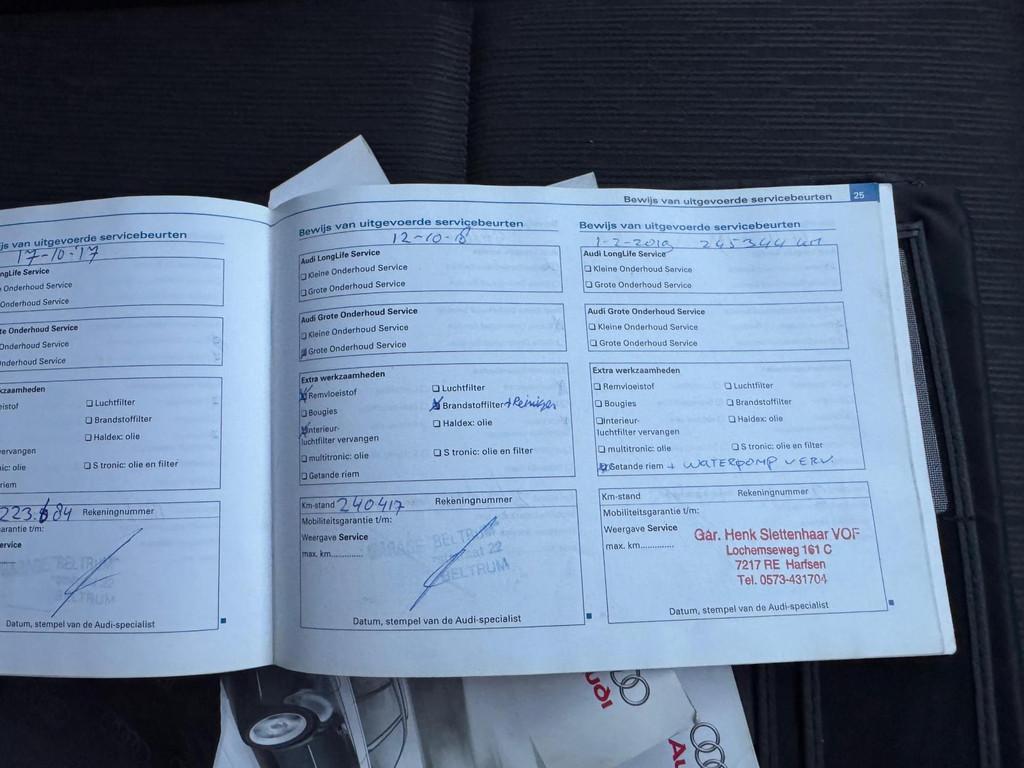 Bewijs van uitgevoerde servicebeurten 25
js van uitgevoerde servicebeurten
17-10-17
ngLife Service
Onderhoud Service
Onderhoud Service
te Onderhoud Service
Onderhoud Service
Onderhoud Service
kzaamheden
eistof
Luchtfilter
Brandstoffilter
Haldex: olie
vervangen
nic: olie
S tronic: olie en filter
riem
223 84 Rekeningnummer
arantie t/m:
ervice
BELTRUM
Datum, stempel van de Audi-specialist
Bewijs van uitgevoerde servicebeurten
12-10-18
Audi LongLife Service
Kleine Onderhoud Service
Grote Onderhoud Service
Audi Grote Onderhoud Service
Kleine Onderhoud Service
Grote Onderhoud Service
Extra werkzaamheden
Remvloeistof
Luchtfilter
Bougies
Brandstoffilter + Reinigen
Interieur-
luchtfilter vervangen
Haldex: olie
multitronic: olie
S tronic: olie en filter
Getande riem
Km-stand 240417 Rekeningnummer
Mobiliteitsgarantie t/m:
Weergave Service
max. km.............
GARAGE BELTRUM
22
BELTRUM
Datum, stempel van de Audi-specialist
Bewijs van uitgevoerde servicebeurten
1-2-2019 245344 km
Audi LongLife Service
Kleine Onderhoud Service
Grote Onderhoud Service
Audi Grote Onderhoud Service
Kleine Onderhoud Service
Grote Onderhoud Service
Extra werkzaamheden
Remvloeistof
Luchtfilter
Bougies
Brandstoffilter
Interieur-
luchtfilter vervangen
Haldex: olie
multitronic: olie
S tronic: olie en filter
Getande riem + WATERPOMP VERV.
Km-stand Rekeningnummer
Mobiliteitsgarantie t/m:
Weergave Service
max. km.............
Gar. Henk Slettenhaar VOF
Lochemseweg 161 C
7217 RE Harfsen
Tel. 0573-431704
Datum, stempel van de Audi-specialist
Audi